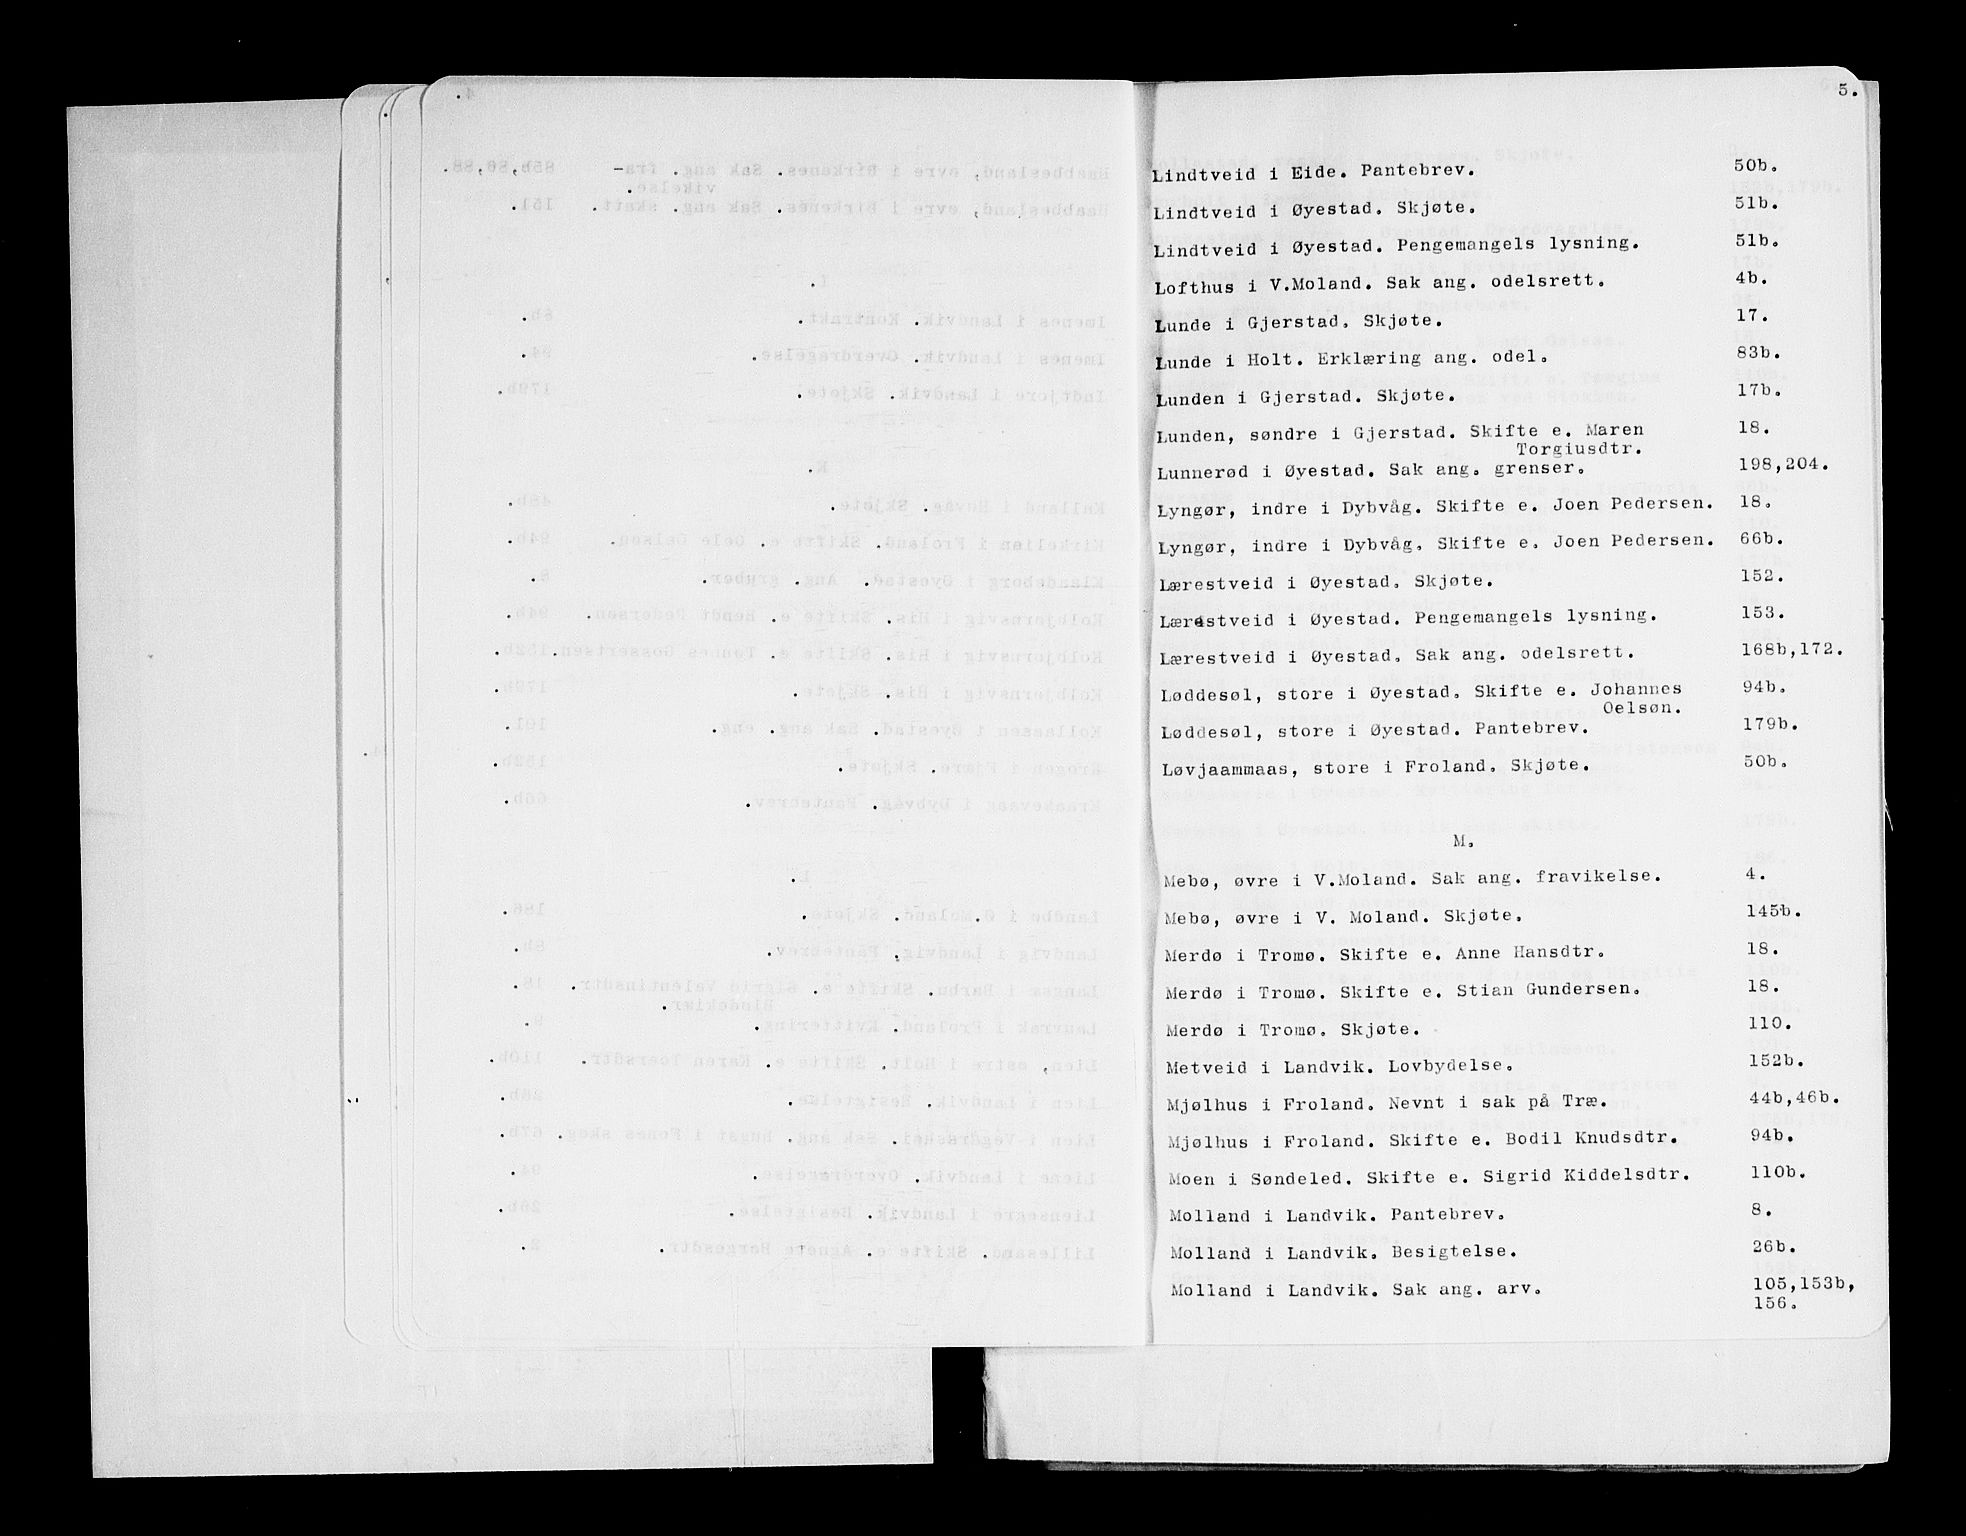 5.
Lindtveid i Eide. Pantebrev. 50b.
Lindtveid i Øyestad. Skjøte. 51b.
Lindtveid i Øyestad. Pengemangels lysning. 51b.
Lofthus i V.Moland. Sak ang. odelsrett. 4b.
Lunde i Gjerstad. Skjøte. 17.
Lunde i Holt. Erklæring ang. odel. 83b.
Lunden i Gjerstad. Skjøte. 17b.
Lunden, søndre i Gjerstad. Skifte e. Maren 18.
Torgiusdtr.
Lunnerød i Øyestad. Sak ang. grenser. 198,204.
Lyngør, indre i Dybvåg. Skifte e. Joen Pedersen. 18.
Lyngør, indre i Dybvåg. Skifte e. Joen Pedersen. 66b.
Lærestveid i Øyestad. Skjøte. 152.
Lærestveid i Øyestad. Pengemangels lysning. 153.
Lærestveid i Øyestad. Sak ang. odelsrett. 168b,172.
Løddesøl, store i Øyestad. Skifte e. Johannes 94b.
Oelsøn.
Løddesøl, store i Øyestad. Pantebrev. 179b.
Løvjaammaas, store i Froland. Skjøte. 50b.
M.
Mebø, øvre i V.Moland. Sak ang. fravikelse. 4.
Mebø, øvre i V. Moland. Skjøte. 145b.
Merdø i Tromø. Skifte e. Anne Hansdtr. 18.
Merdø i Tromø. Skifte e. Stian Gundersen. 18.
Merdø i Tromø. Skjøte. 110.
Metveid i Landvik. Lovbydelse. 152b.
Mjølhus i Froland. Nevnt i sak på Træ. 44b,46b.
Mjølhus i Froland. Skifte e. Bodil Knudsdtr. 94b.
Moen i Søndeled. Skifte e. Sigrid Kiddelsdtr. 110b.
Molland i Landvik. Pantebrev. 8.
Molland i Landvik. Besigtelse. 26b.
Molland i Landvik. Sak ang. arv. 105,153b,
156.